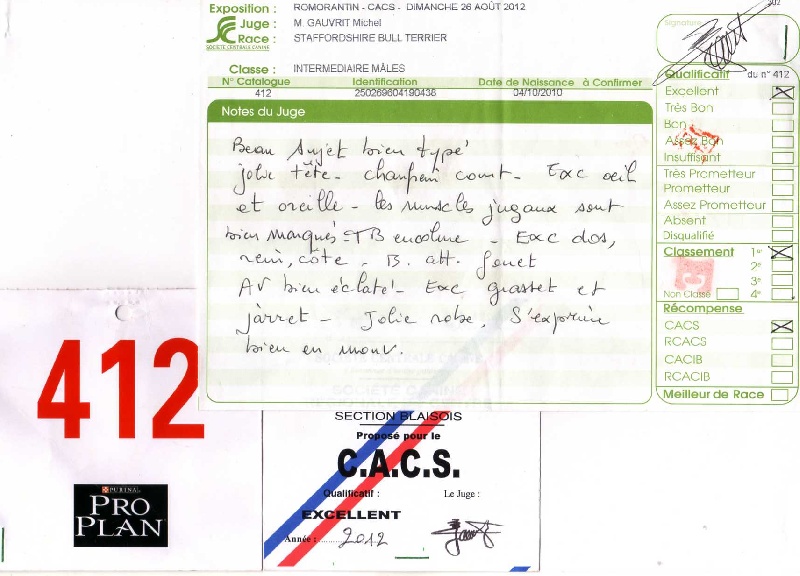 Exposition : ROMORANTIN - CACS - DIMANCHE 26 AOÛT 2012
Juge : M. GAUVRIT Michel
Race : STAFFORDSHIRE BULL TERRIER
SOCIÉTÉ CENTRALE CANINE
Classe : INTERMEDIAIRE MÂLES
N° Catalogue Identification Date de Naissance à Confirmer
412 250269604190436 04/10/2010
Notes du Juge
Beau sujet bien typé
jolie tête - chanfrein court - Exc oeil
et oreille - les muscles jugaux sont
bien marqués - TB encolure - Exc dos,
rein, côte - B. att. fouet
AV bien éclaté - Exc grasset et
jarret - Jolie robe. S'exprime
bien en mouv.
Signature
Qualificatif du n° 412
Excellent
Très Bon
Bon
Assez Bon
Insuffisant
Très Prometteur
Prometteur
Assez Prometteur
Absent
Disqualifié
Classement 1er
2e
3e
Non Classé 4e
Récompense
CACS
RCACS
CACIB
RCACIB
Meilleur de Race
412
PURINA
PRO
PLAN
SECTION BLAISOIS
Proposé pour le
C.A.C.S.
Qualificatif : Le Juge :
EXCELLENT
Année : 2012